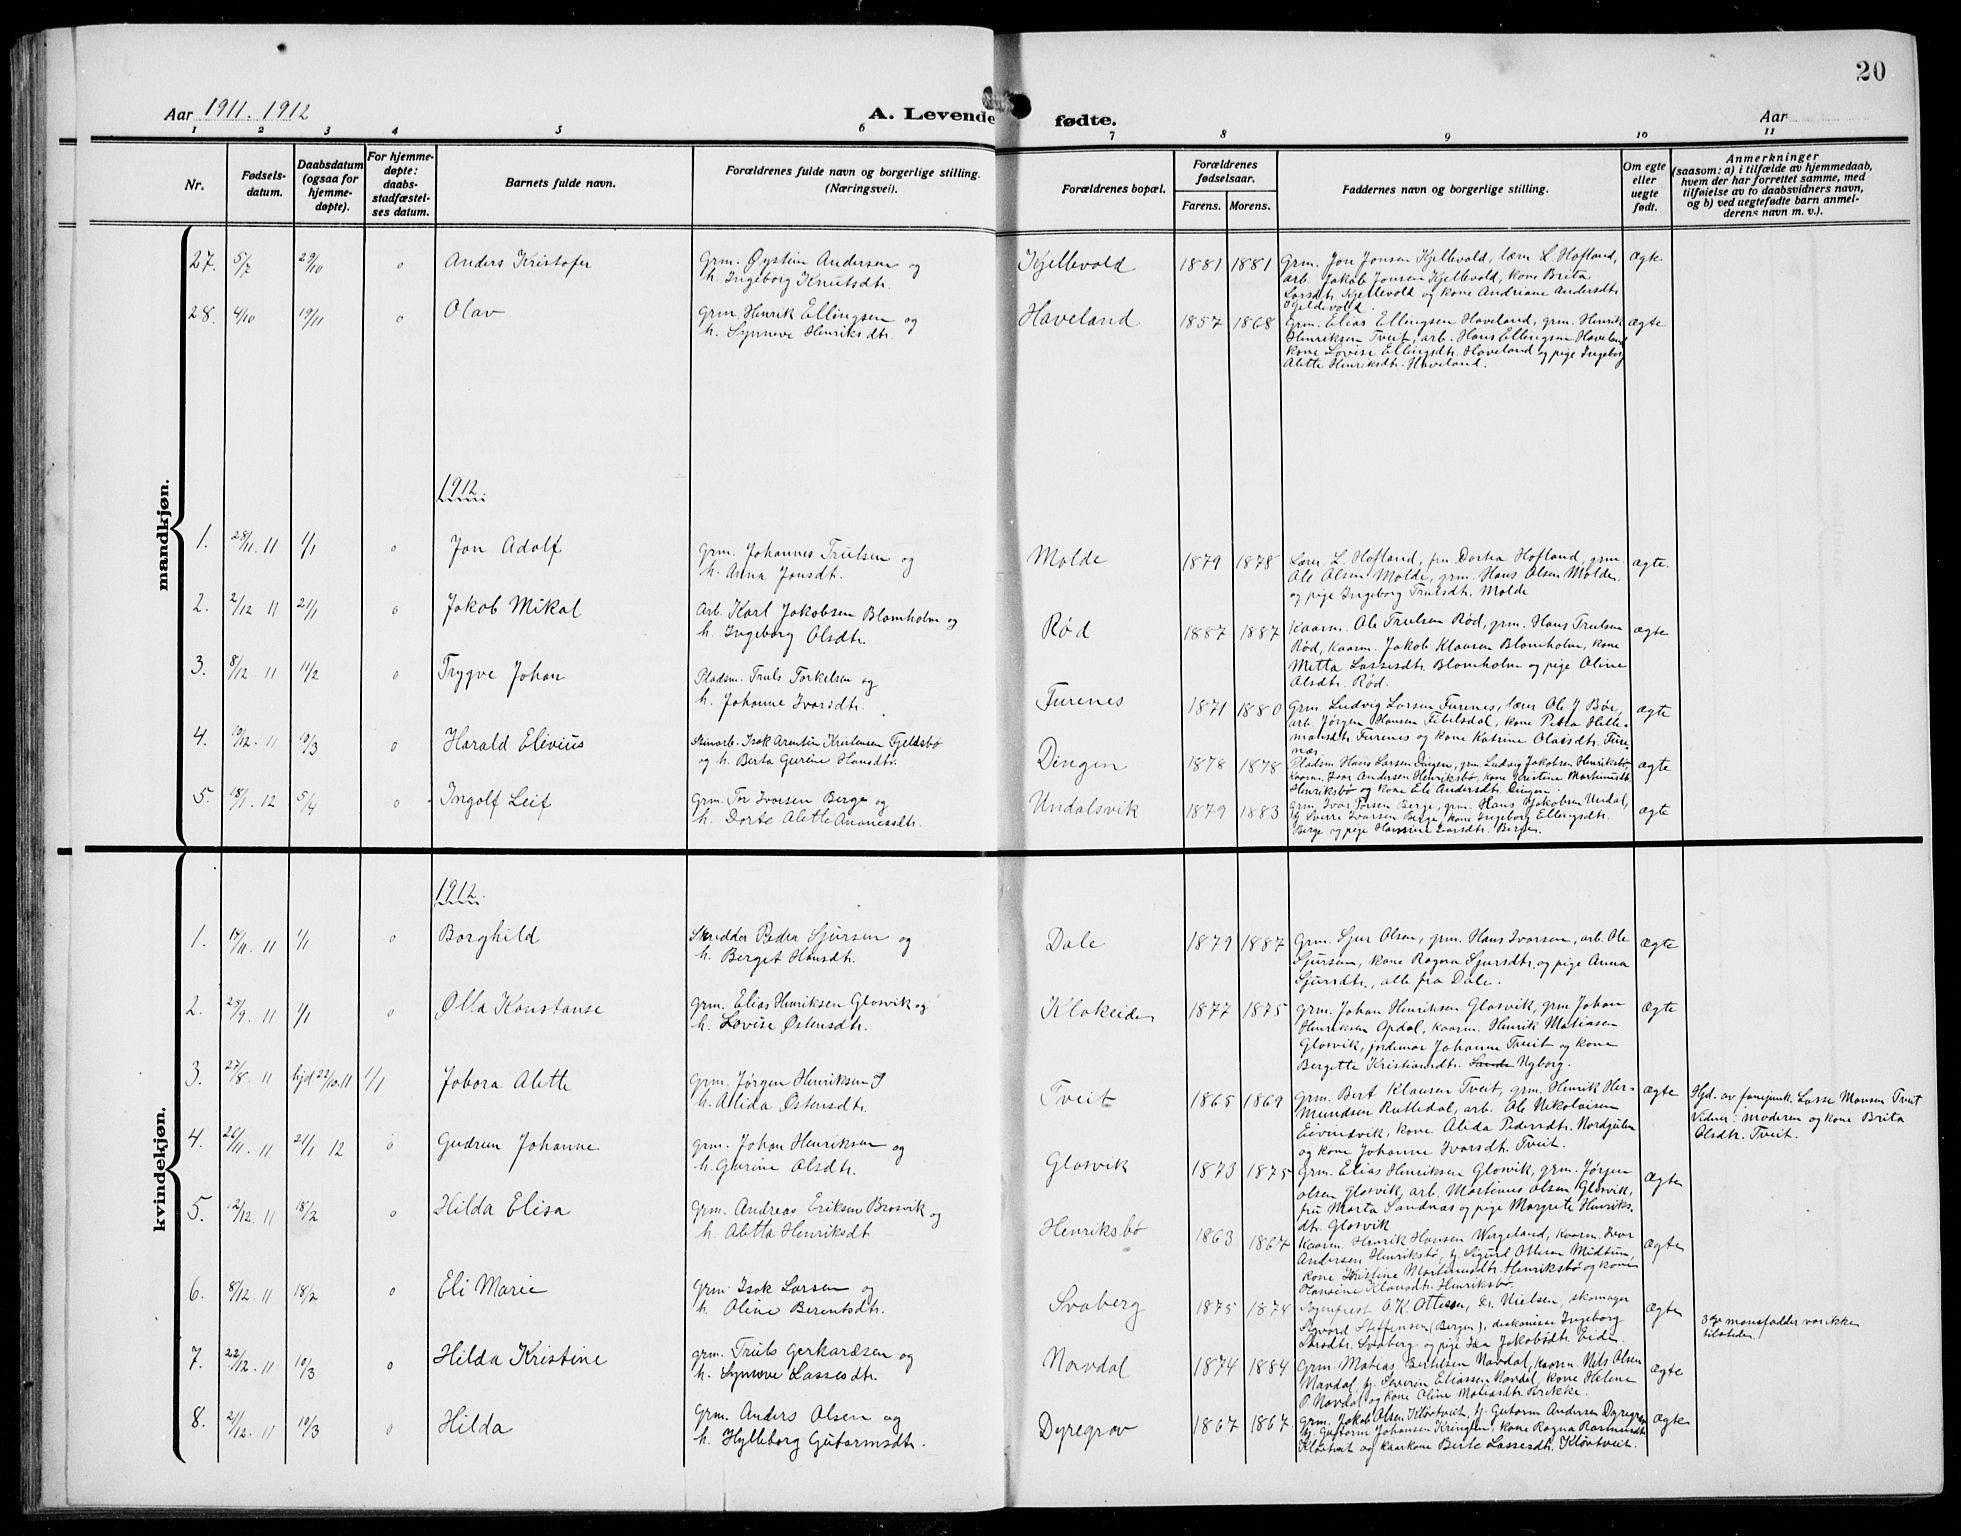 20
Aar 1911. 1912
A. Levende fødte.
Aar
1 2 3 4 5 6 7 8 9 10 11
Nr.
Fødsels-
datum.
Daabsdatum
(ogsaa for
hjemme-
døpte).
For hjemme-
døpte:
daabs-
stadfæstel-
ses datum.
Barnets fulde navn.
Forældrenes fulde navn og borgerlige stilling.
(Næringsvei).
Forældrenes bopæl.
Forældrenes
fødselsaar.
Farens. Morens.
Faddernes navn og borgerlige stilling.
Om egte
eller
uegte
født.
Anmerkninger
(saasom: a) i tilfælde av hjemmedaab,
hvem der har forrettet samme, med
tilføielse av to daabsvidners navn,
og b) ved uegtefødte barn anmel-
derens navn m. v.).
mandkjøn.
27. 5/7 29/10 0 Anders Kristofer
Grm. Øystein Andersen og
h. Ingeborg Knutsdtr.
Kjellevold 1881 1881
Grm. Jon Jonsen Kjellevold, lærer L. Hofland,
arb. Jakob Jonsen Kjellevold, kone Brita
Larsdtr. Kjellevold og kone Andriane Andersdtr.
Gjeldevold.
Ægte
28. 4/10 19/11 0 Olav
Grm. Henrik Ellingsen og
h. Synneve Henriksdtr.
Haveland 1857 1868
Grm. Elias Ellingsen Haveland, grm. Henrik
Henriksen Tveit, arb. Hans Ellingsen Haveland
kone Lovise Ellingsdtr. Haveland og pige Ingeborg
Alette Henriksdtr. Haveland.
Ægte
1912.
1. 28/11. 11 1/1 0 Jon Adolf
Grm. Johannes Trulsen og
h. Anna Jonsdtr.
Molde 1879 1878
Lærer L. Hofland, fru Dorthea Hofland, grm.
Ole Olsen Molde, grm. Hans Olsen Molde.
og pige Ingeborg Trulsdtr. Molde
Ægte.
2. 2/12 11 21/1 0 Jakob Mikal
Arb. Karl Jakobsen Blomholm og
h. Ingeborg Olsdtr.
Rød 1887 1887
Kaarm. Ole Trulsen Rød, grm. Hans Trulsen
Rød, kaarm. Jakob Klausen Blomholm, kone
Metta Lassesdtr. Blomholm og pige Oline
Olsdtr. Rød.
Ægte
3. 8/12 11 11/2 0 Trygve Johan
Pladsm. Truls Torkelsen og
h. Johanne Ivarsdtr.
Furenes 1871 1880
Grm. Ludvig Larsen Furenes, lærer Ole J. Bøe,
arb. Jørgen Hansen Tibelsdal, kone Petra Hille-
mansdtr. Furenes og kone Katrine Olasdtr. Fure-
næs.
Ægte
4. 19/12. 11 10/3 0 Harald Elivius
Stenarb. Isak Arentin Kristensen Fjeldsbø
og h. Berta Gurine Hansdtr.
Dingen 1878 1878
Pladsm. Hans Larsen Dingen, grm. Ludvig Jakobsen Henriksbø,
kaarm. Ivar Andersen Henriksbø, kone Kristine Martinusdtr.
Henriksbø og kone Eli Andersdtr. Dingen.
Ægte
5. 18/1. 12 5/4 0 Ingolf Leif
Grm. Tor Ivarsen Berge og
h. Dorte Alette Ananiasdtr.
Undalsvik 1879 1883
Grm. Ivar Torsen Berge, grm. Hans Jakobsen Undal,
kj. Sverre Ivarsen Berge, kone Ingeborg Ellingsdtr.
Berge og pige Hansine Ivarsdtr. Bergen.
Ægte
kvindekjøn.
1912.
1. 14/11. 11 1/1 0 Borghild
Skrædder Peder Sjursen og
h. Berget Hansdtr.
Dale 1879 1887
Grm. Sjur Olsen, grm. Hans Ivarsen, arb. Ole
Sjursen, kone Ragna Sjursdtr. og pige Anna
Sjursdtr., alle fra Dale.
Ægte
2. 25/9. 11 1/1 0 Olla Konstanse
Grm. Elias Henriksen Glosvik og
h. Lovise Østensdtr.
Klakeiden 1877 1875
Grm. Johan Henriksen Glosvik, grm Johan
Henriksen Opdal, kaarm. Henrik Matiasen
Glosvik, jordemor Johanne Tveit og kone
Bergette Kristiansdtr. Nyborg.
Ægte
3. 27/8. 11 hjd 22/10. 11 1/1 Jobora Alette
Grm. Jørgen Henriksen
h. Alida Østensdtr.
Tveit 1865 1869
Grm. Bert Klausen Tveit, grm. Henrik Her-
mundsen Rutledal, arb. Ole Nikolaisen
Eivindvik, kone Alida Pedersdtr. Nordgulen
og kone Johanne Ivarsdtr. Tveit.
Ægte
Hjd. av Lasse Monsen Tveit
Vidner: moderen og kone Brita
Olsdtr. Tveit.
4. 26/11. 11 21/1 12 0 Gudrun Johanne
Grm. Johan Henriksen og
h. Gurine Olsdtr.
Glosvik 1873 1875
Grm. Elias Henriksen Glosvik, grm. Jørgen
Olsen Glosvik, arb. Martinus Olsen Glosvik,
fru Marta Sandnæs og pige Margrete Henriks-
dtr. Glosvik
Ægte
5. 12/12. 11 18/2 0 Hilda Elisa
Grm. Andreas Eriksen Brosvik og
h. Aletta Henriksdtr
Henriksbø 1863 1867
Kaarm. Henrik Hansen Wergeland, kaarm. Ivar
Andersen Henriksbø, kj. Sigurd Ottesen Midtun,
kone Kristine Martinusdtr. Henriksbø og kone
Hansine Klausdtr. Henriksbø.
Ægte
6. 8/12. 11 18/2 0 Eli Marie
Grm. Isak Larsen og
h. Oline Berentsdtr.
Svaberg 1875 1874
Sogneprest O. K. Ottesen, Dr. Nielsen, skomager
Sigvard Steffensen (Bergen), diakonisse Ingeborg
Larsdtr. Svaberg og pige Ida Jakobsdtr. Eide.
Ægte
3die mansfadder var ikke
tilstede.
7. 22/12. 11 10/3 0 Hilda Kristine
Grm. Truls Gerhardsen og
h. Synneve Lassesdtr.
Navdal 1874 1884
Grm. Matias Bertelsen Navdal, kaarm. Nils Olsen
Navdal, kj. Severin Eliassen Navdal, kone Helene
P. Navdal og kone Oline Matiasdtr. Brekke.
Ægte
8. 21/12. 11 10/3 0 Hilda
Grm. Anders Olsen og
h. Hylleborg Gutormsdtr.
Dyregrov 1867 1867
Grm. Jakob Olsen Kløvtveit, kj. Gutorm Andersen Dyregrov
kj. Gutorm Johansen Kringlen, kone Ragna Rasmusdtr.
Kløvtveit og kaarkone Berte Lassesdtr. Kløvtveit.
Ægte